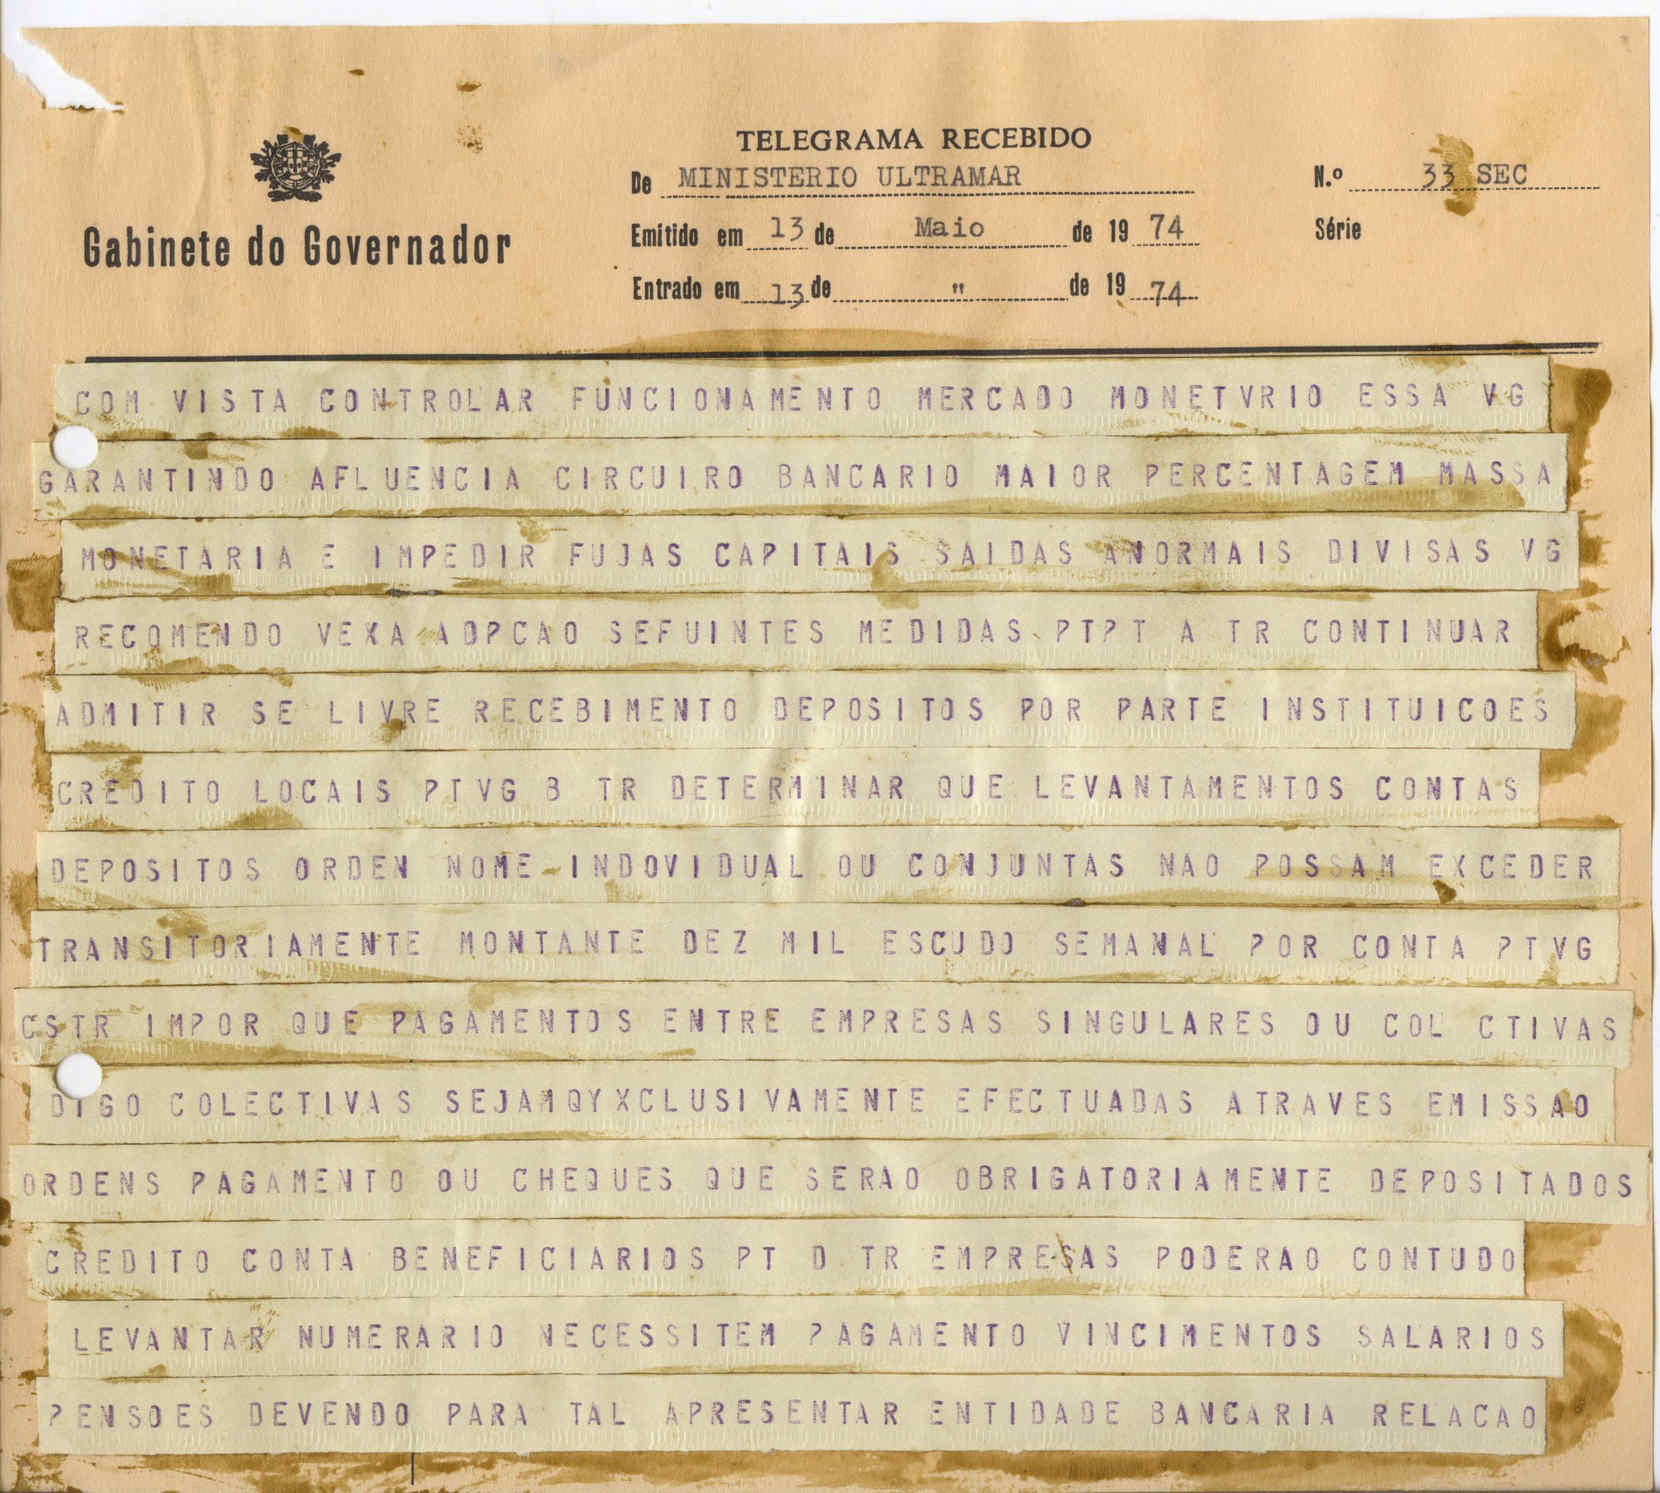 TELEGRAMA RECEBIDO
De MINISTERIO ULTRAMAR
N.º 33 SEC
Gabinete do Governador
Emitido em 13 de Maio de 19 74
Série
Entrado em 13 de " de 19 74
COM VISTA CONTROLAR FUNCIONAMENTO MERCADO MONETVRIO ESSA VG
GARANTINDO AFLUENCIA CIRCUIRO BANCARIO MAIOR PERCENTAGEM MASSA
MONETARIA E IMPEDIR FUJAS CAPITAIS SAIDAS ANORMAIS DIVISAS VG
RECOMENDO VEXA ADPCAO SEFUINTES MEDIDAS PTPT A TR CONTINUAR
ADMITIR SE LIVRE RECEBIMENTO DEPOSITOS POR PARTE INSTITUICOES
CREDITO LOCAIS PTVG B TR DETERMINAR QUE LEVANTAMENTOS CONTAS
DEPOSITOS ORDEN NOME INDOVIDUAL OU CONJUNTAS NAO POSSAM EXCEDER
TRANSITORIAMENTE MONTANTE DEZ MIL ESCUDO SEMANAL POR CONTA PTVG
CSTR IMPOR QUE PAGAMENTOS ENTRE EMPRESAS SINGULARES OU COL CTIVAS
DIGO COLECTIVAS SEJAMQYXCLUSIVAMENTE EFECTUADAS ATRAVES EMISSAO
ORDENS PAGAMENTO OU CHEQUES QUE SERAO OBRIGATORIAMENTE DEPOSITADOS
CREDITO CONTA BENEFICIARIOS PT D TR EMPRESAS PODERAO CONTUDO
LEVANTAR NUMERARIO NECESSITEM PAGAMENTO VINCIMENTOS SALARIOS
PENSOES DEVENDO PARA TAL APRESENTAR ENTIDADE BANCARIA RELACAO